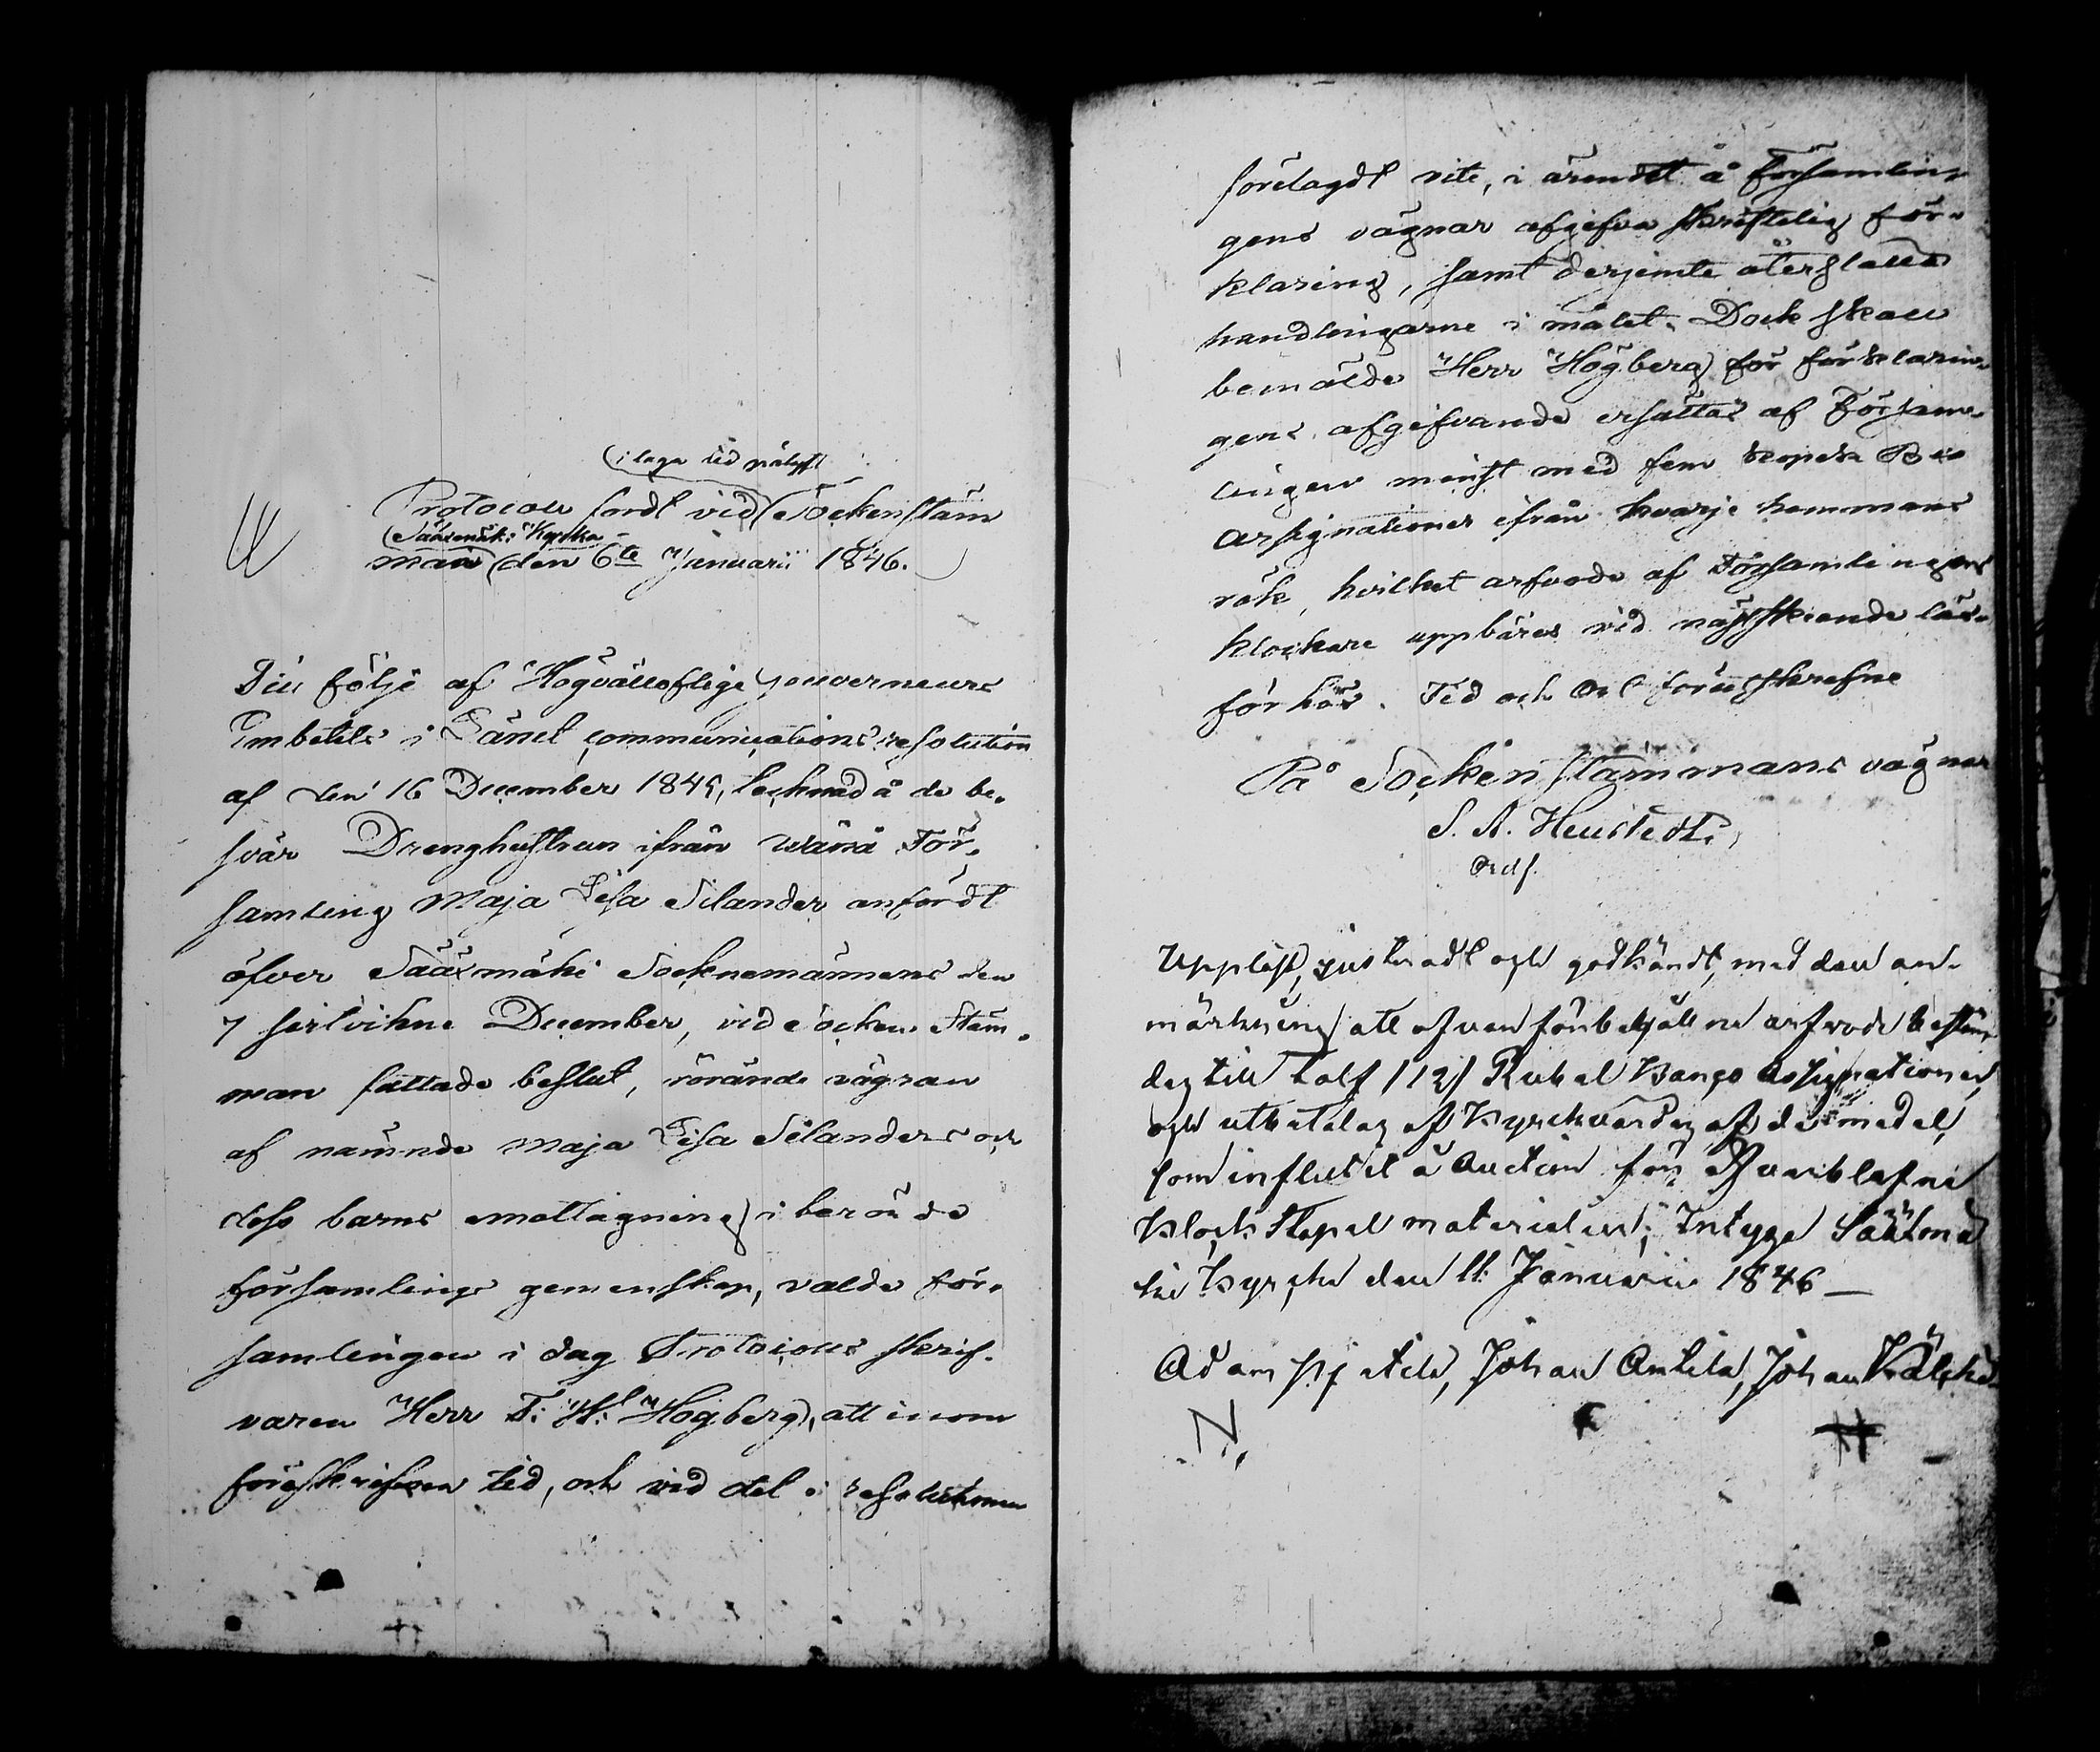 (i laga tid pålyst
Protocoll fördt vid (Sockenstäm
(Sääxmäki Kyrka
man (den 6te Januarii 1846.
Till följe af Högvällofliga Gouverneurs
Embetets i Länet communications resolution
af den 16 December 1845, tecknad å de be-
svär Drenghustrun ifrån Wånå För-
samling Maja Lisa Silander anfördt
öfver Sääxmäki Socknemännens den
7 sistvikne December, vid Socken Stäm-
man fattade beslut, rörande vägran
af nämnde Maja Lisa Silanders och
dess barns emottagning i berörde
församlings gemenskap, valde För-
samlingen i dag Protocolls skrif-
varen Herr F: H: Högberg, att inom
föreskrifven tid, och vid det i resolutionen
förelagdt vite, i ärendet å Församlin-
gens vägnar afgifva skriftelig för-
klaring, samt derjemte återställa
handlingarne i målet. Dock skall
bemälde Herr Högberg för förklarin-
gens afgifvande ersättas af Försam-
lingen minst med fem kopek Bco
assignationer ifrån hvarje hemmans
rök, hvilket arfvode af Församlingens
klockare uppbäres vid nästskeende läs-
förhör. Tid och Ort förutskrefne
På Sockenstämmans vägnar
S. A.
Ordf.
Uppläst, justeradt och godkändt, med den an-
märkning att ofvanförbehållne arfvode bestäm-
des till tolf /12/ Rubel Banco Assignationer,
och utbetalas af Kyrckvärden af de medel,
som influtit å Auction för qvarblefne
Klock Stapel materialier; Intyga Sääxmä
ki Kyrcka den 11 Januarii 1846 —
Adam Johan Anttila, Johan
N